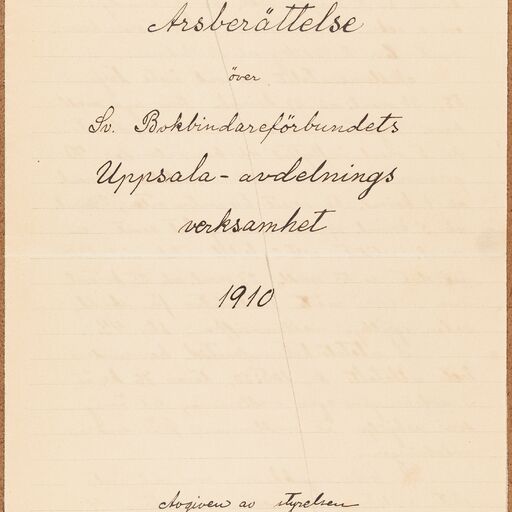 Årsberättelse
över
Sv. Bokbindareförbundets
Uppsala-avdelnings
verksamhet
1910
Avgiven av styrelsen